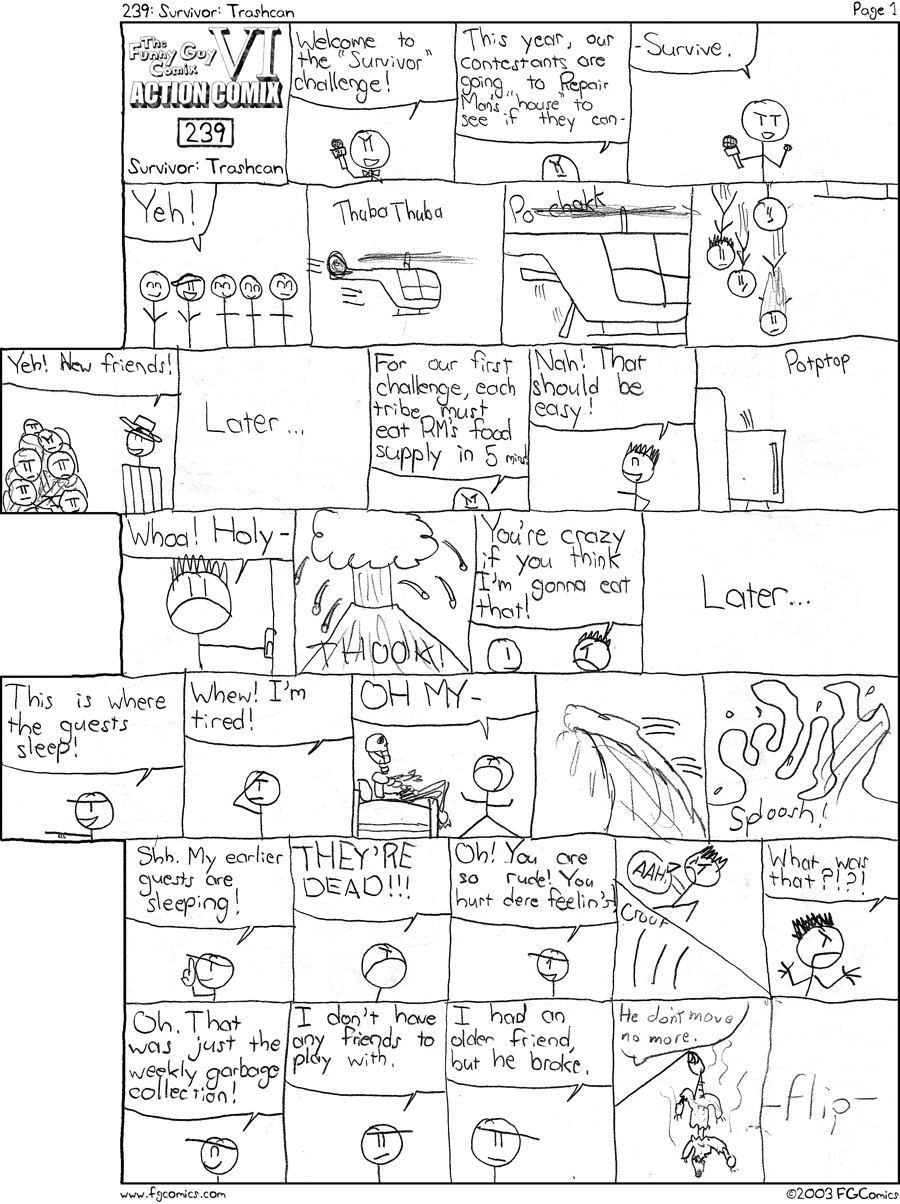 239: Survivor: Trashcan
Page 1
The
Funny Guy
Comix
VI
ACTION COMIX
239
Survivor: Trashcan
Welcome to
the "Survivor"
challenge!
This year, our
contestants are
going to Repair
Man's "house" to
see if they can-
-Survive.
Yeh!
Thuba Thuba
Po chakk
Yeh! New friends!
Later...
For our first
challenge, each
tribe must
eat RM's food
supply in 5 mins!
Nah! That
should be
easy!
Potptop
Whoa! Holy-
THOOK!
You're crazy
if you think
I'm gonna eat
that!
Later...
This is where
the guests
sleep!
Whew! I'm
tired!
OH MY-
Sploosh!
Shh. My earlier
guests are
sleeping!
THEY'RE
DEAD!!!
Oh! You are
so rude! You
hurt dere feelin's!
AAH!
What was
that?!?!
Oh. That
was just the
weekly garbage
collection!
I don't have
any friends to
play with.
I had an
older friend,
but he broke.
He don't move
no more.
-flip-
www.fgcomics.com
©2003 FGComics